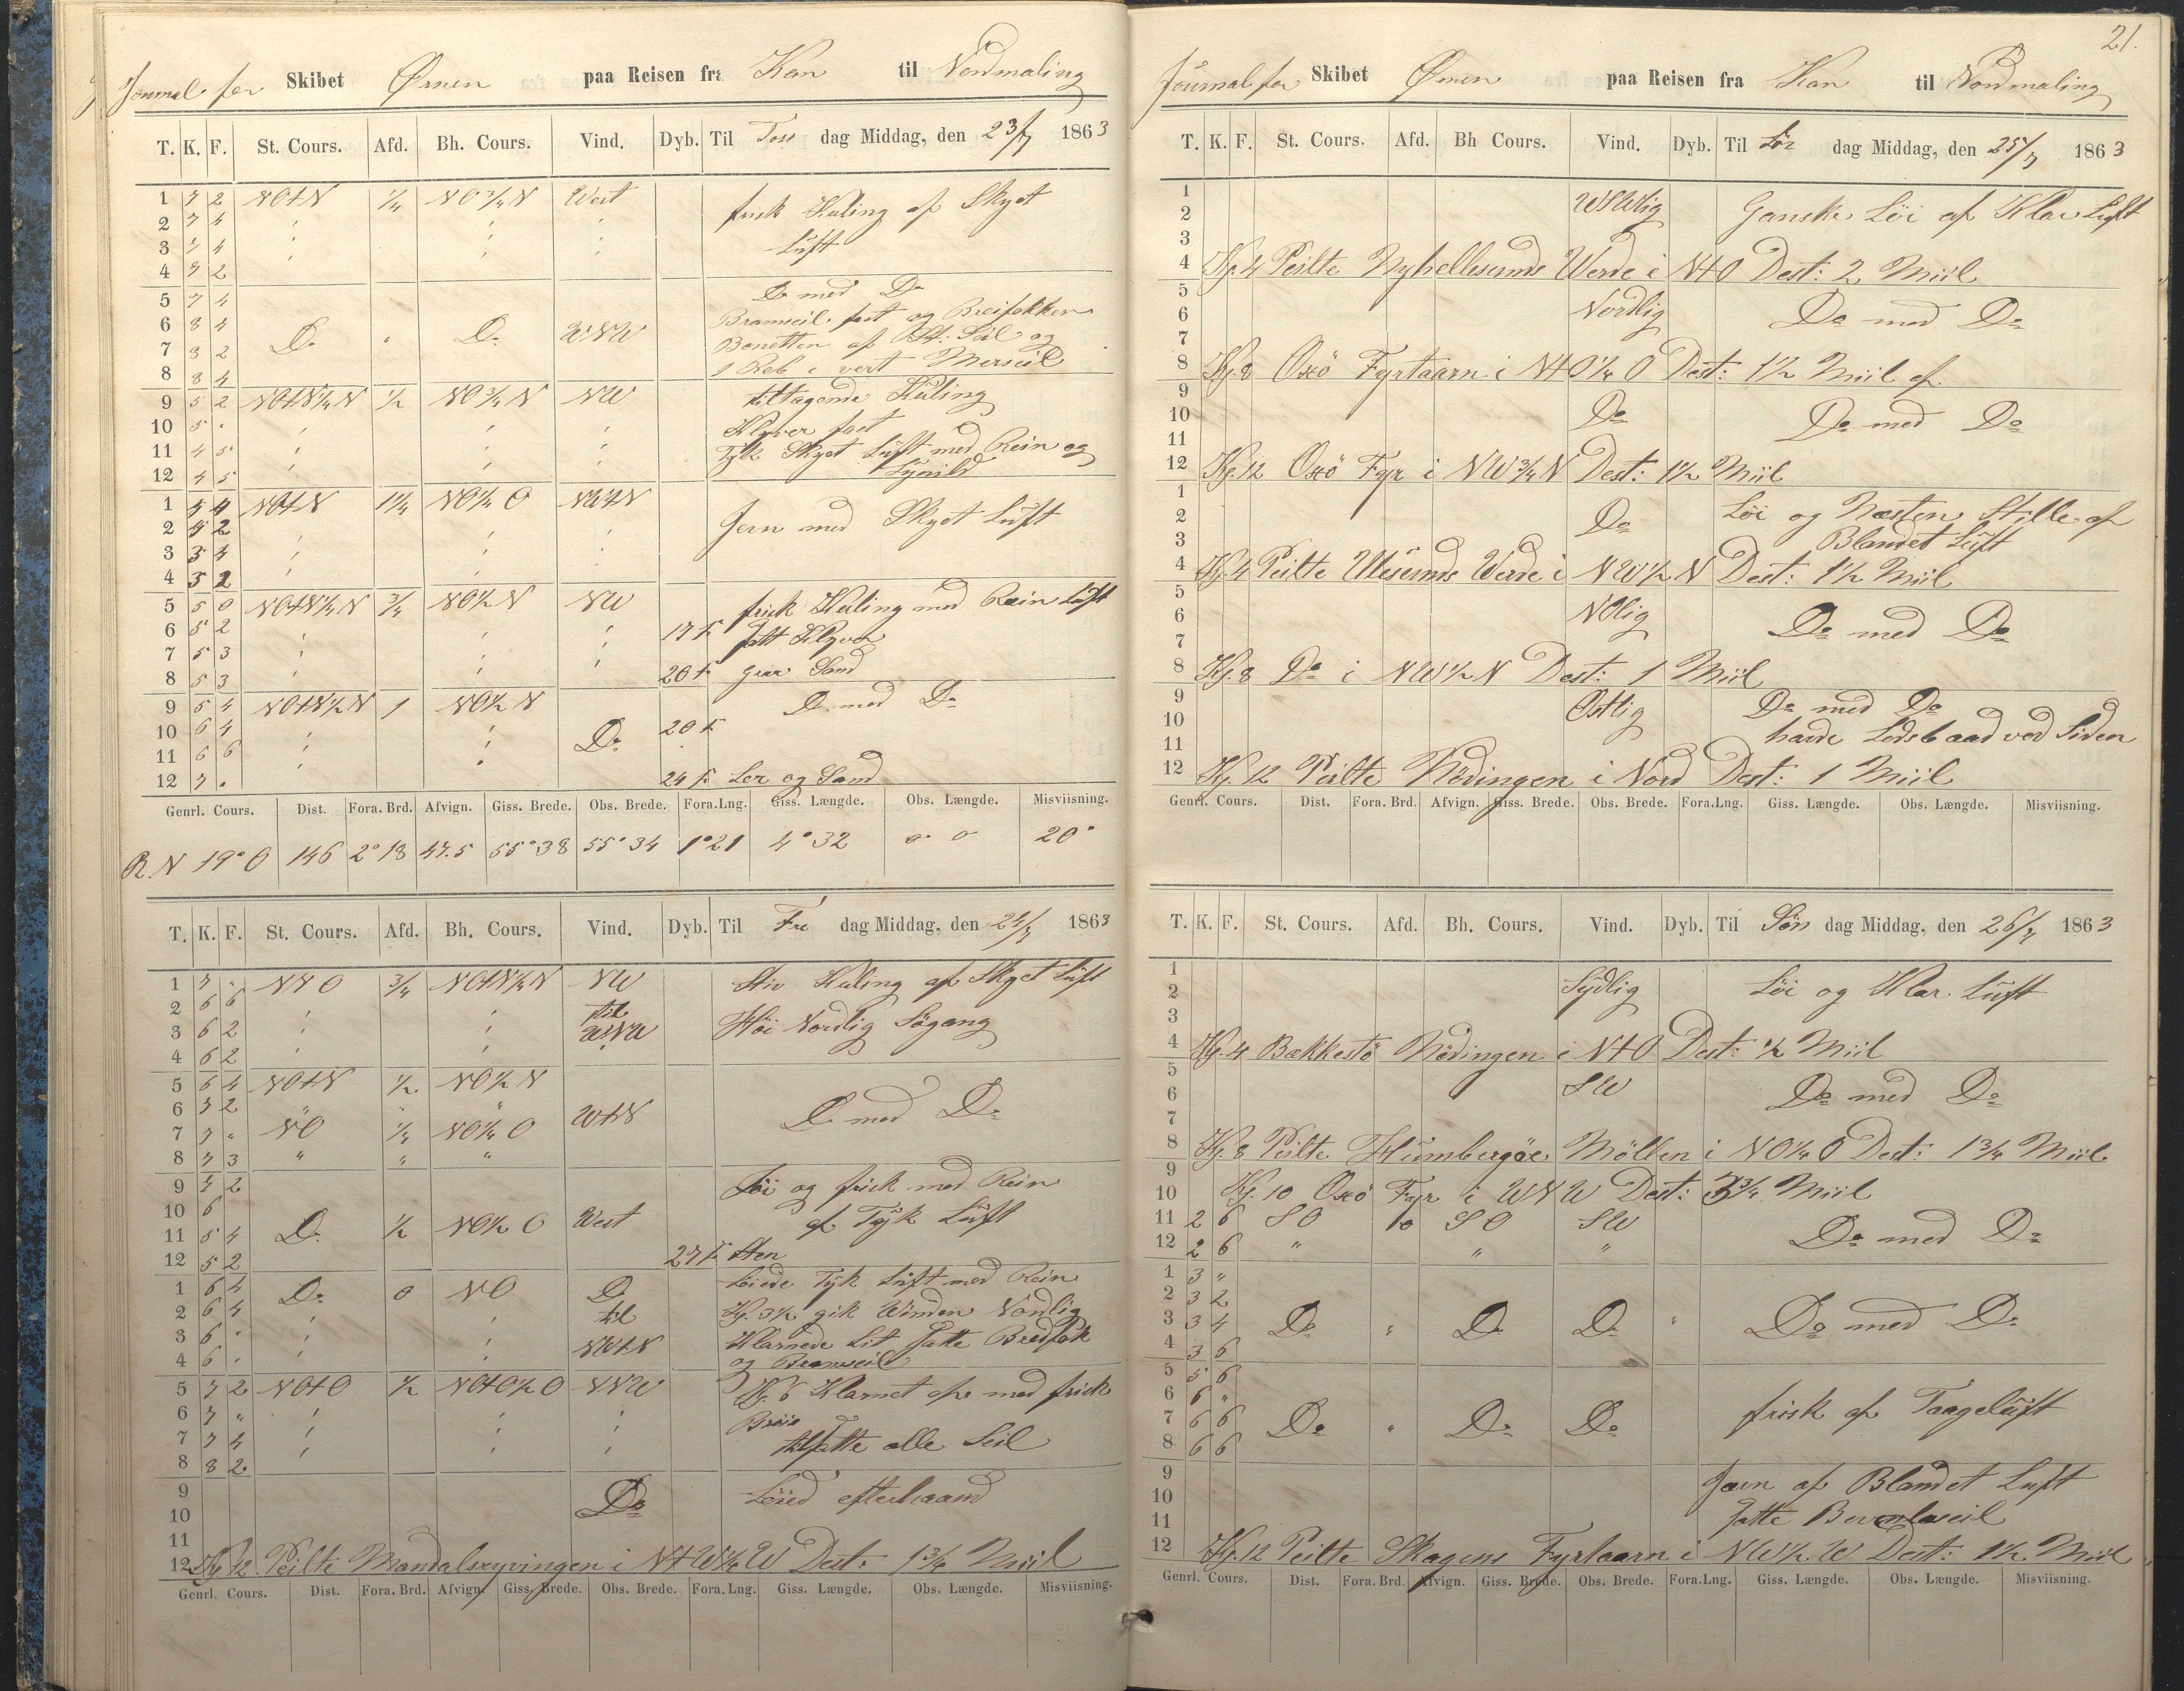 Journal for Skibet Ørnen paa Reisen fra Kan til Nordmaling
T. K. F. St. Cours. Afd. Bh. Cours. Vind. Dyb. Til Tors dag Middag, den 23/7 1863
1 7 2 NOtN 1/4 NO 3/4 N West frisk Kuling af Skyet
2 7 4 Luft
3 7 4
4 7 2
5 7 4 Do med Do
6 8 4 Do " Do WNW Bramseil fast og Breifokken
7 8 2 Bonetten af St: Seil og
8 8 4 1 Reb i vert Merseil
9 5 2 NOtN 1/4 N 1/2 NO 3/4 N NW tiltagende Kuling
10 5 " Klyver fast
11 4 5 Tyk Skyet Luft med Rein og
12 4 5 Lynild
1 4 4 NOtN 1 1/4 NO 1/4 O NWtN Jevn med Skyet Luft
2 4 2
3 3 4
4 3 2
5 5 0 NOtN 1/4 N 3/4 NO 1/2 N NW frisk Kuling med Rein Luft
6 5 2 17 F. satt Klyver
7 5 3
8 5 3 20 F. graa Sand
9 5 4 NOtN 1/2 N 1 NO 1/2 N Do med Do
10 6 4 Do 20 F.
11 6 6
12 7 " 24 F. Ler og Sand
Genrl. Cours. Dist. Fora. Brd. Afvign. Giss. Brede. Obs. Brede. Fora. Lng. Giss. Længde. Obs. Længde. Misviisning.
R. N 19° O 146 2° 18 47.5 55° 38 55° 34 1° 21 4° 32 " " 20°
T. K. F. St. Cours. Afd. Bh. Cours. Vind. Dyb. Til Fre dag Middag, den 24/7 1863
1 7 " NNO 3/4 NOtN 1/4 N NW Stiv Kuling af Skyet Luft
2 6 6 til
3 6 2 WNW Höi Nordlig Sögang
4 6 2
5 6 4 NOtN 1/2 NO 1/2 N
6 7 2 " " " WtN Do med Do
7 7 " NO 1/4 NO 1/4 O
8 7 3 " " "
9 7 2 Löi og frisk med Rein
10 6 Do 1/2 NO 1/2 O West af Tyk Luft
11 5 4
12 5 2 27 F. Sten
1 6 4 Do 0 NO Do Löiede Tyk Luft med Rein
2 6 4 til Kl. 3 1/2 gik Winden Nordlig
3 6 " NWtN Klarnede Lit satte Bredfok
4 6 " og Bramseil
5 7 2 NOtO 1/2 NOtO 1/2 O NNW Kl. 6 Klarnet op med frisk
6 7 " Brise
7 7 4 tilsatte alle Seil
8 8 2
9
10 Do Löied efterhaand
11
12 Kl 12 Peilte Mandalsryvingen i NtW 1/4 W Dest: 1 3/4 Miil
Genrl. Cours. Dist. Fora. Brd. Afvign. Giss. Brede. Obs. Brede. Fora. Lng. Giss. Længde. Obs. Længde. Misviisning.
21.
Journal for Skibet Ørnen paa Reisen fra Kan til Nordmaling
T. K. F. St. Cours. Afd. Bh Cours. Vind. Dyb. Til Lör dag Middag, den 25/7 1863
1 WSWlig Ganske Löi af Klar Luft
2
3
4 Kl. 4 Peilte Nyhellesunds Werde i NtO Dest: 2 Miil
5
6 Nordlig Do med Do
7
8 Kl. 8 Oxö Fyrtaarn i NtO 1/4 O Dest: 1 1/2 Miil af
9
10 Do Do med Do
11
12 Kl. 12 Oxö Fyr i NW 3/4 N Dest: 1 1/2 Miil
1 Löi og Næsten Stille af
2 Do Blandet Luft
3
4 Kl. 4 Peilte Ulesunds Werde i NW 1/2 N Dest: 1 1/2 Miil
5
6 NOlig Do med Do
7
8 Kl. 8 Do i NW 1/2 N Dest: 1 Miil
9 Östlig Do med Do
10 havde Lodsbaad ved Siden
11
12 Kl. 12 Peilte Nödingen i Nord Dest: 1 Miil
Genrl. Cours. Dist. Fora. Brd. Afvign. Giss. Brede. Obs. Brede. Fora. Lng. Giss. Længde. Obs. Længde. Misviisning.
T. K. F. St. Cours. Afd. Bh. Cours. Vind. Dyb. Til Sön dag Middag, den 26/7 1863
1 Sydlig Löi og Klar Luft
2
3
4 Kl. 4 Bækkestö Nödingen i NtO Dest: 1/2 Miil
5
6 SW Do med Do
7
8 Kl. 8 Peilte Humbergöe Möllen i NO 1/4 O Dest: 1 3/4 Miil
9
10 Kl. 10 Oxö Fyr i WNW Dest: 3 3/4 Miil
11 2 6 SO 10 SO SW Do med Do
12 2 6 " " "
1 3 "
2 3 2
3 3 4 Do " Do Do " Do med Do
4 3 6
5 5 6
6 6 "
7 6 6 Do " Do Do frisk af Taageluft
8 6 6
9 Jevn af Blandet Luft
10
11 satte Bovenbramseil
12 Kl. 12 Peilte Skagens Fyrtaarn i NW 1/2 W Dest: 1 1/2 Miil
Genrl. Cours. Dist. Fora. Brd. Afvign. Giss. Brede. Obs. Brede. Fora. Lng. Giss. Længde. Obs. Længde. Misviisning.